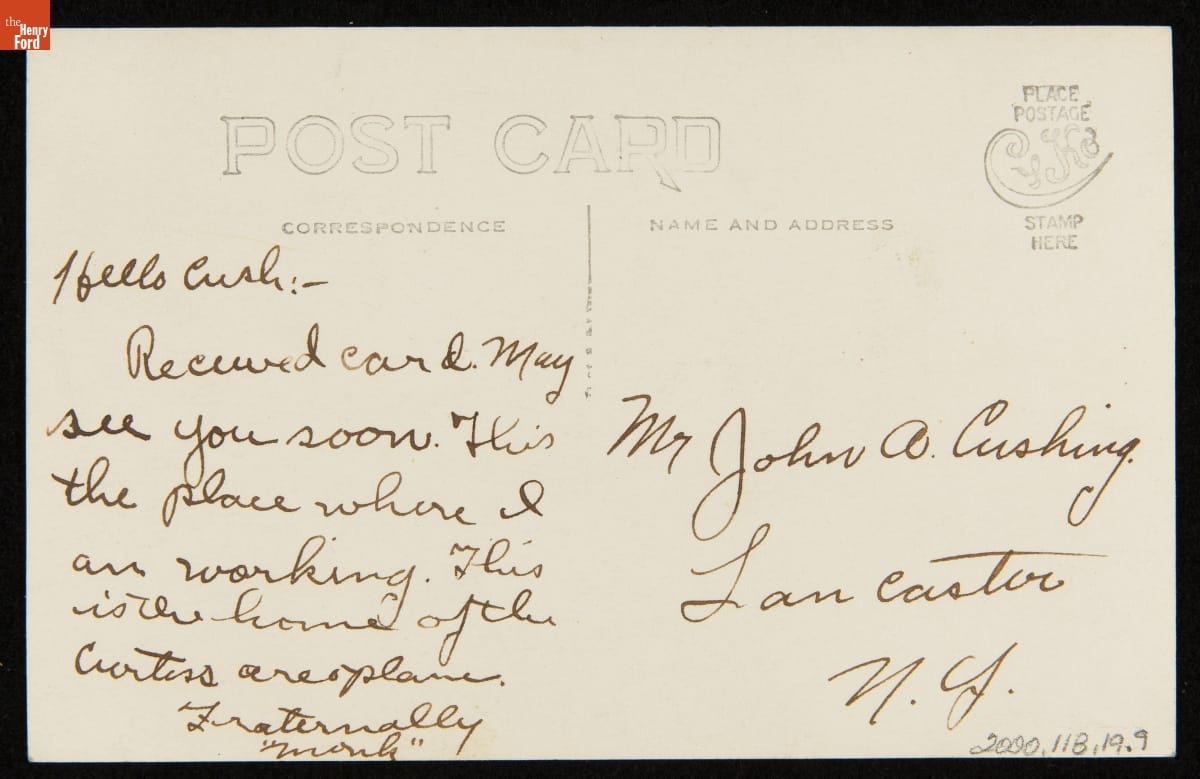 the
Henry
Ford
POST CARD
PLACE
POSTAGE
CYKO
STAMP
HERE
CORRESPONDENCE
NAME AND ADDRESS
Hello Cush:-
Received card. May
see you soon. This
the place where I
am working. This
is the home of the
Curtiss areoplane.
Fraternally
"Monk"
Mr John A. Cushing.
Lancaster
N. Y.
2000.118.19.9